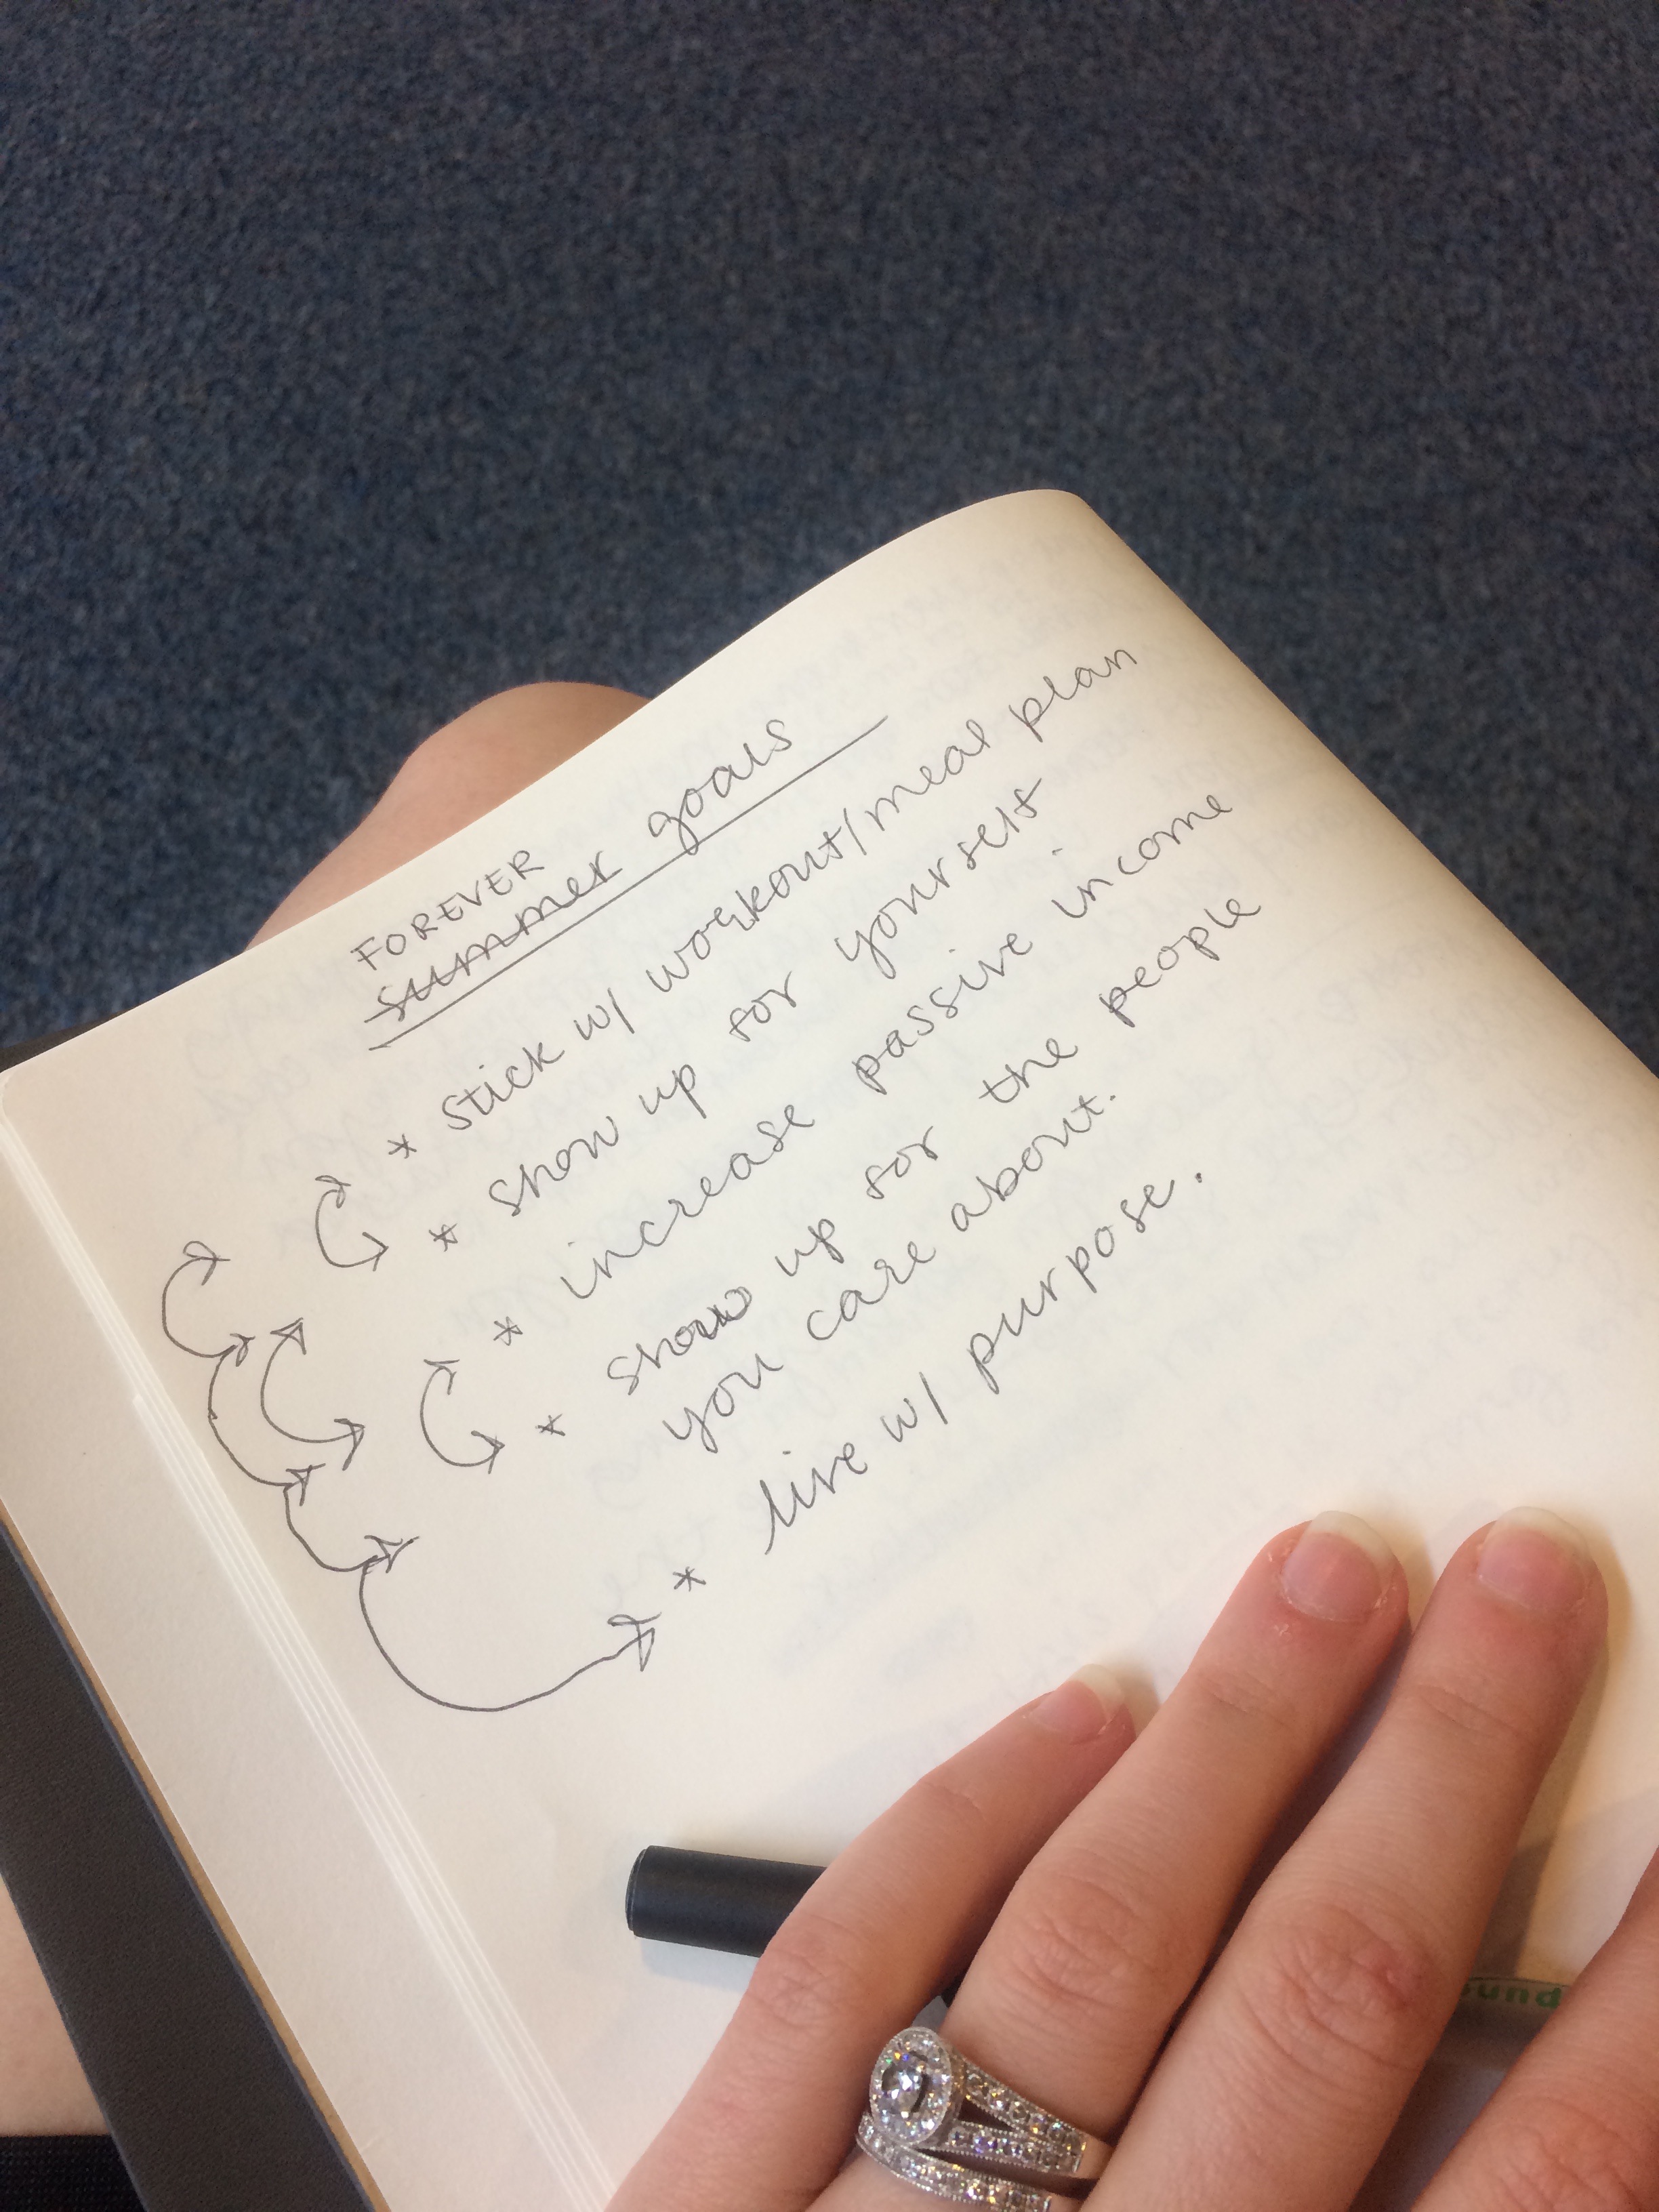 FOREVER
summer goals
* stick w/ workout/meal plan
* show up for yourself
* increase passive income
* show up for the people
you care about.
* live w/ purpose.